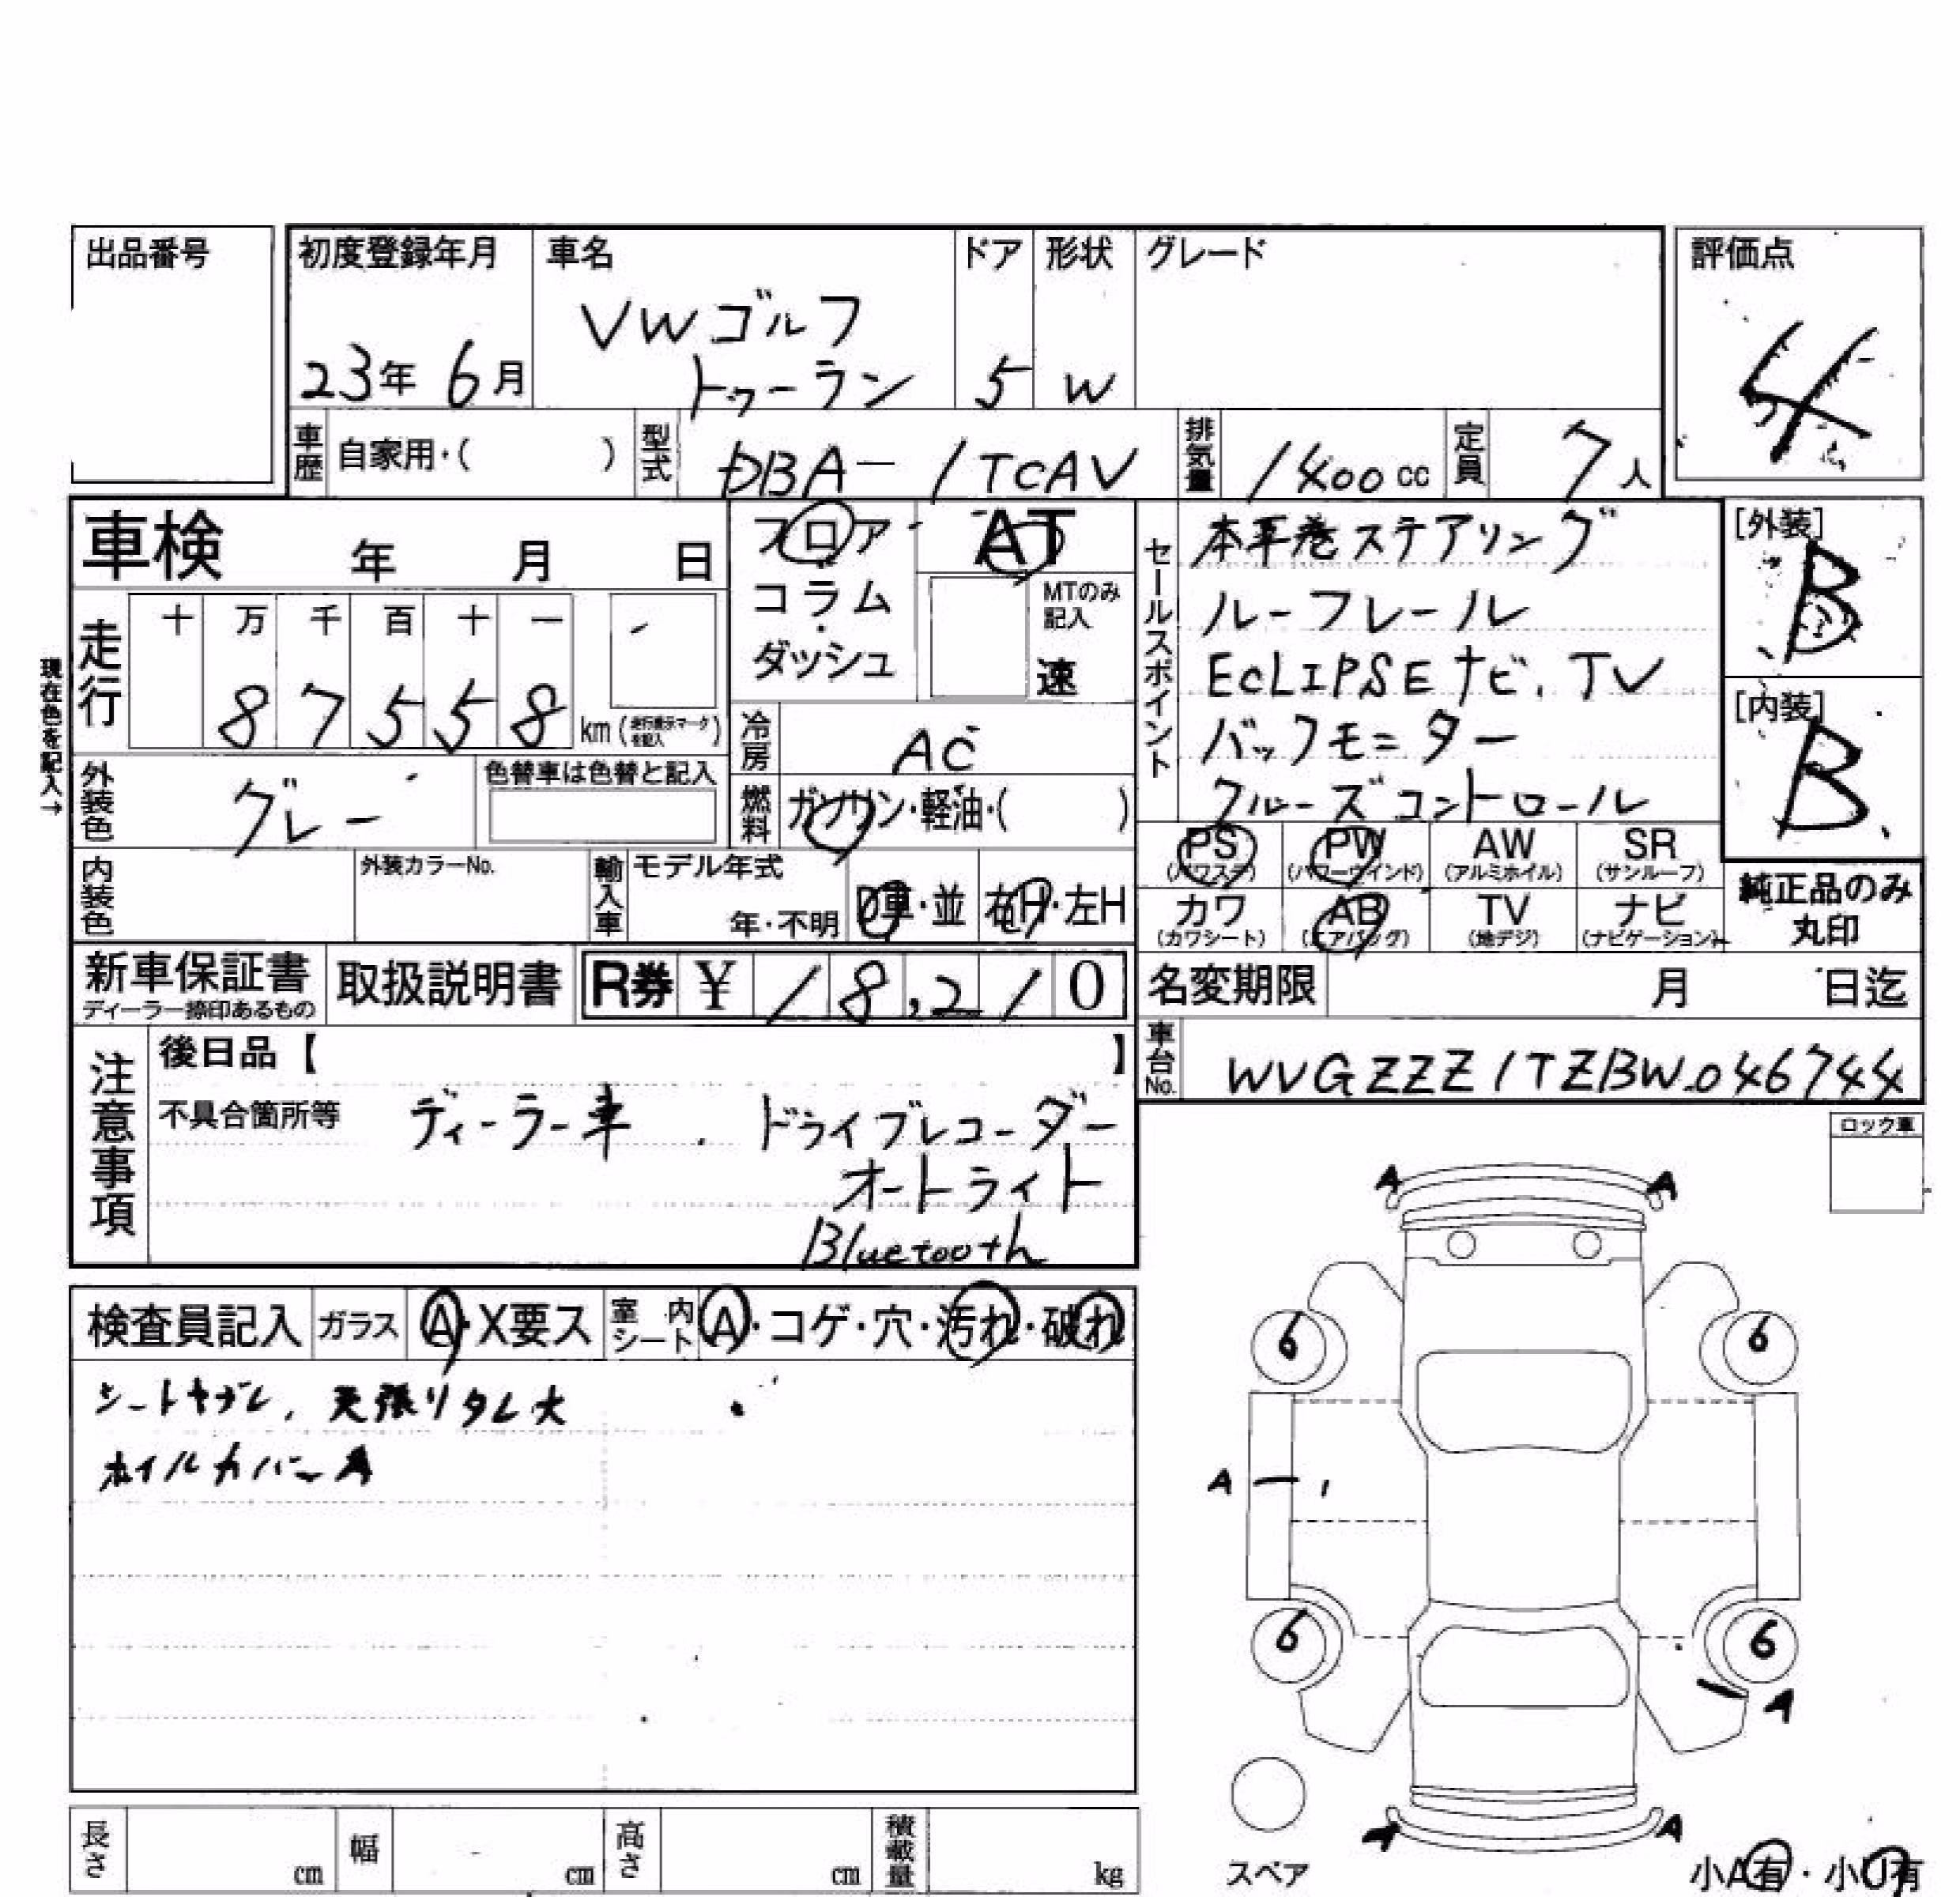 出品番号
初度登録年月 車名 ドア 形状 グレード 評価点
VWゴルフ
23年 6月 トゥーラン 5 W 4
車歴 自家用・( ) 型式 DBA-1TCAV 排気量 1400cc 定員 7人
車検 年 月 日
フロア・
コラム・
ダッシュ
AT
MTのみ
記入
速
セールスポイント
本革巻ステアリング
ルーフレール
ECLIPSEナビ、TV
バックモニター
クルーズコントロール
[外装]
B
[内装]
B
現在色を記入→
走行 十 万 千 百 十 一
8 7 5 5 8 km(走行表示マークを記入)
冷房 AC
外装色 グレー 色替車は色替と記入
燃料 ガソリン・軽油・( )
PS (パワステ) PW (パワーウインド) AW (アルミホイル) SR (サンルーフ)
カワ (カワシート) AB (エアバッグ) TV (地デジ) ナビ (ナビゲーション)
純正品のみ
丸印
内装色 外装カラーNo. 輸入車 モデル年式
年・不明 D車・並 右H・左H
新車保証書 取扱説明書 R券 ¥ 18,210
ディーラー捺印あるもの
名変期限 月 日迄
車台No. WVGZZZ1TZBW046744
注意事項
後日品【 】
不具合箇所等 ディーラー車 ドライブレコーダー
オートライト
Bluetooth
ロック車
検査員記入 ガラス A・X要ス 室内シート A・コゲ・穴・汚れ・破れ
シートヤブレ、天張りタレ大
ホイルカバーA
A A
6 6
A
6 6
A
A A
スペア
小A有・小U有
長さ cm 幅 cm 高さ cm 積載量 kg